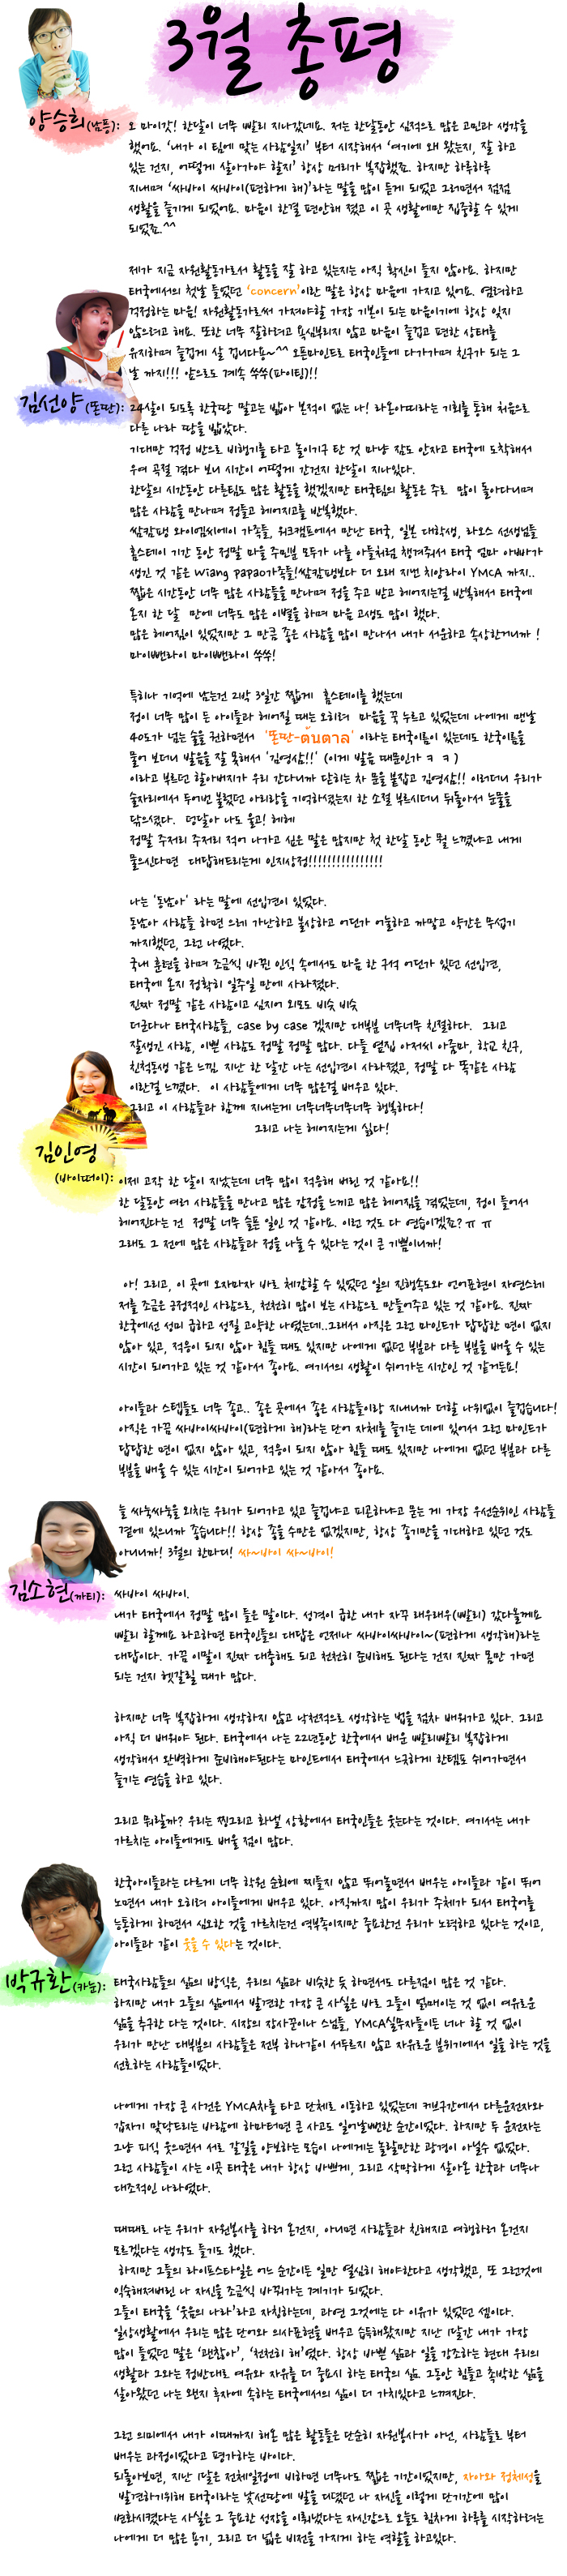 3월 총평
양승희(남픙):
오 마이갓! 한달이 너무 빨리 지나갔네요. 저는 한달동안 심적으로 많은 고민과 생각을
했어요. '내가 이 팀에 맞는 사람일지' 부터 시작해서 '여기에 왜 왔는지, 잘 하고
있는 건지, 어떻게 살아가야 할지' 항상 머리가 복잡했죠. 하지만 하루하루
지내며 '싸바이 싸바이(편하게 해)'라는 말을 많이 듣게 되었고 그러면서 점점
생활을 즐기게 되었어요. 마음이 한결 편안해 졌고 이 곳 생활에만 집중할 수 있게
되었죠.^^
제가 지금 자원활동가로서 활동을 잘 하고 있는지는 아직 확신이 들지 않아요. 하지만
태국에서의 첫날 들었던 'concern'이란 말은 항상 마음에 가지고 있어요. 염려하고
걱정하는 마음! 자원활동가로써 가져야할 가장 기본이 되는 마음이기에 항상 잊지
않으려고 해요. 또한 너무 잘하려고 욕심부리지 않고 마음이 즐겁고 편한 상태를
유지하며 즐겁게 살 겁니다요~^^ 오픈마인드로 태국인들에 다가가며 친구가 되는 그
날 까지!!! 앞으로도 계속 쑤쑤(파이팅)!!
김선양(똔딴):
24살이 되도록 한국땅 말고는 밟아 본적이 없는 나! 라온아띠라는 기회를 통해 처음으로
다른 나라 땅을 밟았다.
기대만 걱정 반으로 비행기를 타고 놀이기구 탄 것 마냥 잠도 안자고 태국에 도착해서
우여 곡절 겪다 보니 시간이 어떻게 간건지 한달이 지나있다.
한달의 시간동안 다른팀도 많은 활동을 했겠지만 태국팀의 활동은 주로 많이 돌아다니며
많은 사람을 만나며 정들고 헤어지고를 반복했다.
쌈캄팽 와이엠씨에이 가족들, 워크캠프에서 만난 태국, 일본 대학생, 라오스 선생님들
홈스테이 기간 동안 정말 마을 주민분 모두가 나를 아들처럼 챙겨줘서 태국 엄마 아빠가
생긴 것 같은 Wiang papao가족들!쌈캄팽보다 더 오래 지번 치앙라이 YMCA 까지..
짧은 시간동안 너무 많은 사람들을 만나며 정을 주고 받고 헤어지는걸 반복해서 태국에
온지 한 달 만에 너무도 많은 이별을 하며 마음 고생도 많이 했다.
많은 헤어짐이 있었지만 그 만큼 좋은 사람을 많이 만나서 내가 서운하고 속상한거니까 !
마이뻰라이 마이뻰라이 쑤쑤!
특히나 기억에 남는건 2박 3일간 짧게 홈스테이를 했는데
정이 너무 많이 든 아이들과 헤어질 때는 오히려 마음을 꾹 누르고 있었는데 나에게 맨날
40도가 넘는 술을 권하면서 '똔딴-ต้นตาล' 이라는 태국이름이 있는데도 한국이름을
물어 보더니 발음을 잘 못해서 '김영삼!!' (이게 발음 때문인가 ㅋ ㅋ )
이라고 부르던 할아버지가 우리 간다니까 닫히는 차 문을 붙잡고 김영삼!! 이러더니 우리가
술자리에서 두어번 불렀던 아리랑을 기억하셨는지 한 소절 부르시더니 뒤돌아서 눈물을
닦으셨다. 덩달아 나도 울고! 헤헤
정말 주저리 주저리 적어 나가고 싶은 말은 많지만 첫 한달 동안 뭘 느꼈냐고 내게
물으신다면 대답해드리는게 인지상정!!!!!!!!!!!!!!!!
나는 '동남아' 라는 말에 선입견이 있었다.
동남아 사람들 하면 으레 가난하고 불쌍하고 어딘가 어눌하고 까맣고 약간은 무섭기
까지했던, 그런 나였다.
국내 훈련을 하며 조금씩 바뀐 인식 속에서도 마음 한 구석 어딘가 있던 선입견,
태국에 온지 정확히 일주일 만에 사라졌다.
진짜 정말 같은 사람이고 심지어 외모도 비슷 비슷
더군다나 태국사람들, case by case 겠지만 대부분 너무너무 친절하다. 그리고
잘생긴 사람, 이쁜 사람도 정말 정말 많다. 다들 옆집 아저씨 아줌마, 학교 친구,
친척동생 같은 느낌. 지난 한 달간 나는 선입견이 사라졌고, 정말 다 똑같은 사람
이란걸 느꼈다. 이 사람들에게 너무 많은걸 배우고 있다.
그리고 이 사람들과 함께 지내는게 너무너무너무너무 행복하다!
그리고 나는 헤어지는게 싫다!
김인영
(바이떠이):
이제 고작 한 달이 지났는데 너무 많이 적응해 버린 것 같아요!!
한 달동안 여러 사람들을 만나고 많은 감정을 느끼고 많은 헤어짐을 겪었는데, 정이 들어서
헤어진다는 건 정말 너무 슬픈 일인 것 같아요. 이런 것도 다 연습이겠죠?ㅠ ㅠ
그래도 그 전에 많은 사람들과 정을 나눌 수 있다는 것이 큰 기쁨이니까!
아! 그리고, 이 곳에 오자마자 바로 체감할 수 있었던 일의 진행속도와 언어표현이 자연스레
저를 조금은 긍정적인 사람으로, 천천히 많이 보는 사람으로 만들어주고 있는 것 같아요. 진짜
한국에선 성미 급하고 성질 고약한 나였는데..그래서 아직은 그런 마인드가 답답한 면이 없지
않아 있고, 적응이 되지 않아 힘들 때도 있지만 나에게 없던 부분과 다른 부분을 배울 수 있는
시간이 되어가고 있는 것 같아서 좋아요. 여기서의 생활이 쉬어가는 시간인 것 같거든요!
아이들과 스탭들도 너무 좋고.. 좋은 곳에서 좋은 사람들이랑 지내니까 더할 나위없이 즐겁습니다!
아직은 가끔 싸바이싸바이(편하게 해)라는 단어 자체를 즐기는 데에 있어서 그런 마인드가
답답한 면이 없지 않아 있고, 적응이 되지 않아 힘들 때도 있지만 나에게 없던 부분과 다른
부분을 배울 수 있는 시간이 되어가고 있는 것 같아서 좋아요.
늘 싸눅싸눅을 외치는 우리가 되어가고 있고 즐겁냐고 피곤하냐고 묻는 게 가장 우선순위인 사람들
곁에 있으니까 좋습니다!! 항상 좋을 수만은 없겠지만, 항상 좋기만을 기대하고 있던 것도
아니니까! 3월의 한마디! 싸~바이 싸~바이!
김소현(까티):
싸바이 싸바이.
내가 태국에서 정말 많이 들은 말이다. 성격이 급한 내가 자꾸 래우래우(빨리) 갔다올께요
빨리 할께요 라고하면 태국인들의 대답은 언제나 싸바이싸바이~(편하게 생각해)라는
대답이다. 가끔 이말이 진짜 대충해도 되고 천천히 준비해도 된다는 건지 진짜 몸만 가면
되는 건지 헷갈릴 때가 많다.
하지만 너무 복잡하게 생각하지 않고 낙천적으로 생각하는 법을 점차 배워가고 있다. 그리고
아직 더 배워야 된다. 태국에서 나는 22년동안 한국에서 배운 빨리빨리 복잡하게
생각해서 완벽하게 준비해야된다는 마인드에서 태국에서 느긋하게 한템포 쉬어가면서
즐기는 연습을 하고 있다.
그리고 뭐랄까? 우리는 찡그리고 화낼 상황에서 태국인들은 웃는다는 것이다. 여기서는 내가
가르치는 아이들에게도 배울 점이 많다.
한국아이들과는 다르게 너무 학원 순회에 찌들지 않고 뛰어놀면서 배우는 아이들과 같이 뛰어
노면서 내가 오히려 아이들에게 배우고 있다. 아직까지 많이 우리가 주체가 되서 태국어를
능통하게 하면서 심오한 것을 가르치는건 역부족이지만 중요한건 우리가 노력하고 있다는 것이고,
아이들과 같이 웃을 수 있다는 것이다.
박규환(카눈):
태국사람들의 삶의 방식은, 우리의 삶과 비슷한 듯 하면서도 다른점이 많은 것 같다.
하지만 내가 그들의 삶에서 발견한 가장 큰 사실은 바로 그들이 얽매이는 것 없이 여유로운
삶을 추구한 다는 것이다. 시장의 장사꾼이나 스님들, YMCA실무자들이든 너나 할 것 없이
우리가 만난 대부분의 사람들은 전부 하나같이 서두르지 않고 자유로운 분위기에서 일을 하는 것을
선호하는 사람들이었다.
나에게 가장 큰 사건은 YMCA차를 타고 단체로 이동하고 있었는데 커브구간에서 다른운전자와
갑자기 맞닥드리는 바람에 하마터면 큰 사고도 일어날뻔한 순간이었다. 하지만 두 운전자는
그냥 피식 웃으면서 서로 갈길을 양보하는 모습이 나에게는 놀랄만한 광경이 아닐수 없었다.
그런 사람들이 사는 이곳 태국은 내가 항상 바쁘게, 그리고 삭막하게 살아온 한국과 너무나
대조적인 나라였다.
때때로 나는 우리가 자원봉사를 하러 온건지, 아니면 사람들과 친해지고 여행하러 온건지
모르겠다는 생각도 들기도 했다.
하지만 그들의 라이프스타일은 어느 순간이든 일만 열심히 해야한다고 생각했고, 또 그런것에
익숙해져버린 나 자신을 조금씩 바꿔가는 계기가 되었다.
그들이 태국을 '웃음의 나라'라고 자칭하는데, 과연 그것에는 다 이유가 있었던 셈이다.
일상생활에서 우리는 많은 단어와 의사표현을 배우고 습득해왔지만 지난 1달간 내가 가장
많이 들었던 말은 '괜찮아', '천천히 해'였다. 항상 바쁜 삶과 일을 강조하는 현대 우리의
생활과 그와는 정반대로 여유와 자유를 더 중요시 하는 태국의 삶. 그동안 힘들고 촉박한 삶을
살아왔던 나는 왠지 후자에 속하는 태국에서의 삶이 더 가치있다고 느껴진다.
그런 의미에서 내가 이때까지 해온 많은 활동들은 단순히 자원봉사가 아닌, 사람들로 부터
배우는 과정이었다고 평가하는 바이다.
되돌아보면, 지난 1달은 전체일정에 비하면 너무나도 짧은 기간이었지만, 자아와 정체성을
발견하기위해 태국이라는 낯선땅에 발을 디뎠던 나 자신을 이렇게 단기간에 많이
변화시켰다는 사실은 그 중요한 성장을 이뤄냈다는 자신감으로 오늘도 힘차게 하루를 시작하려는
나에게 더 많은 용기, 그리고 더 넓은 비전을 가지게 하는 역할을 하고있다.